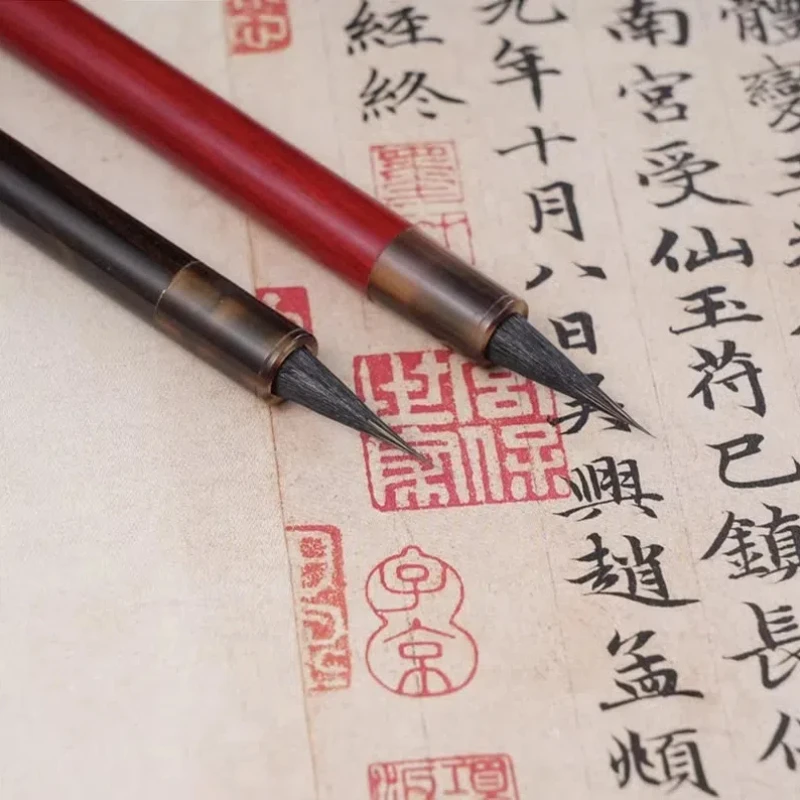 體變
南宮受仙玉符已鎮長
年十月八日吳興趙孟頫
經終
宮保世家
子京